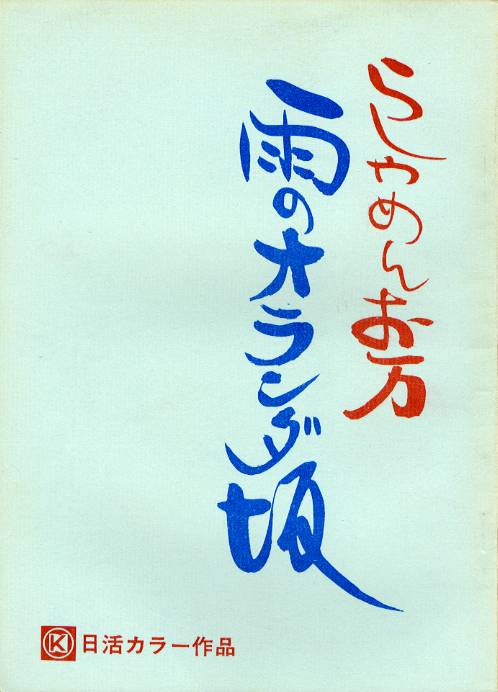 らしゃめんお万
雨のオランダ坂
K 日活カラー作品